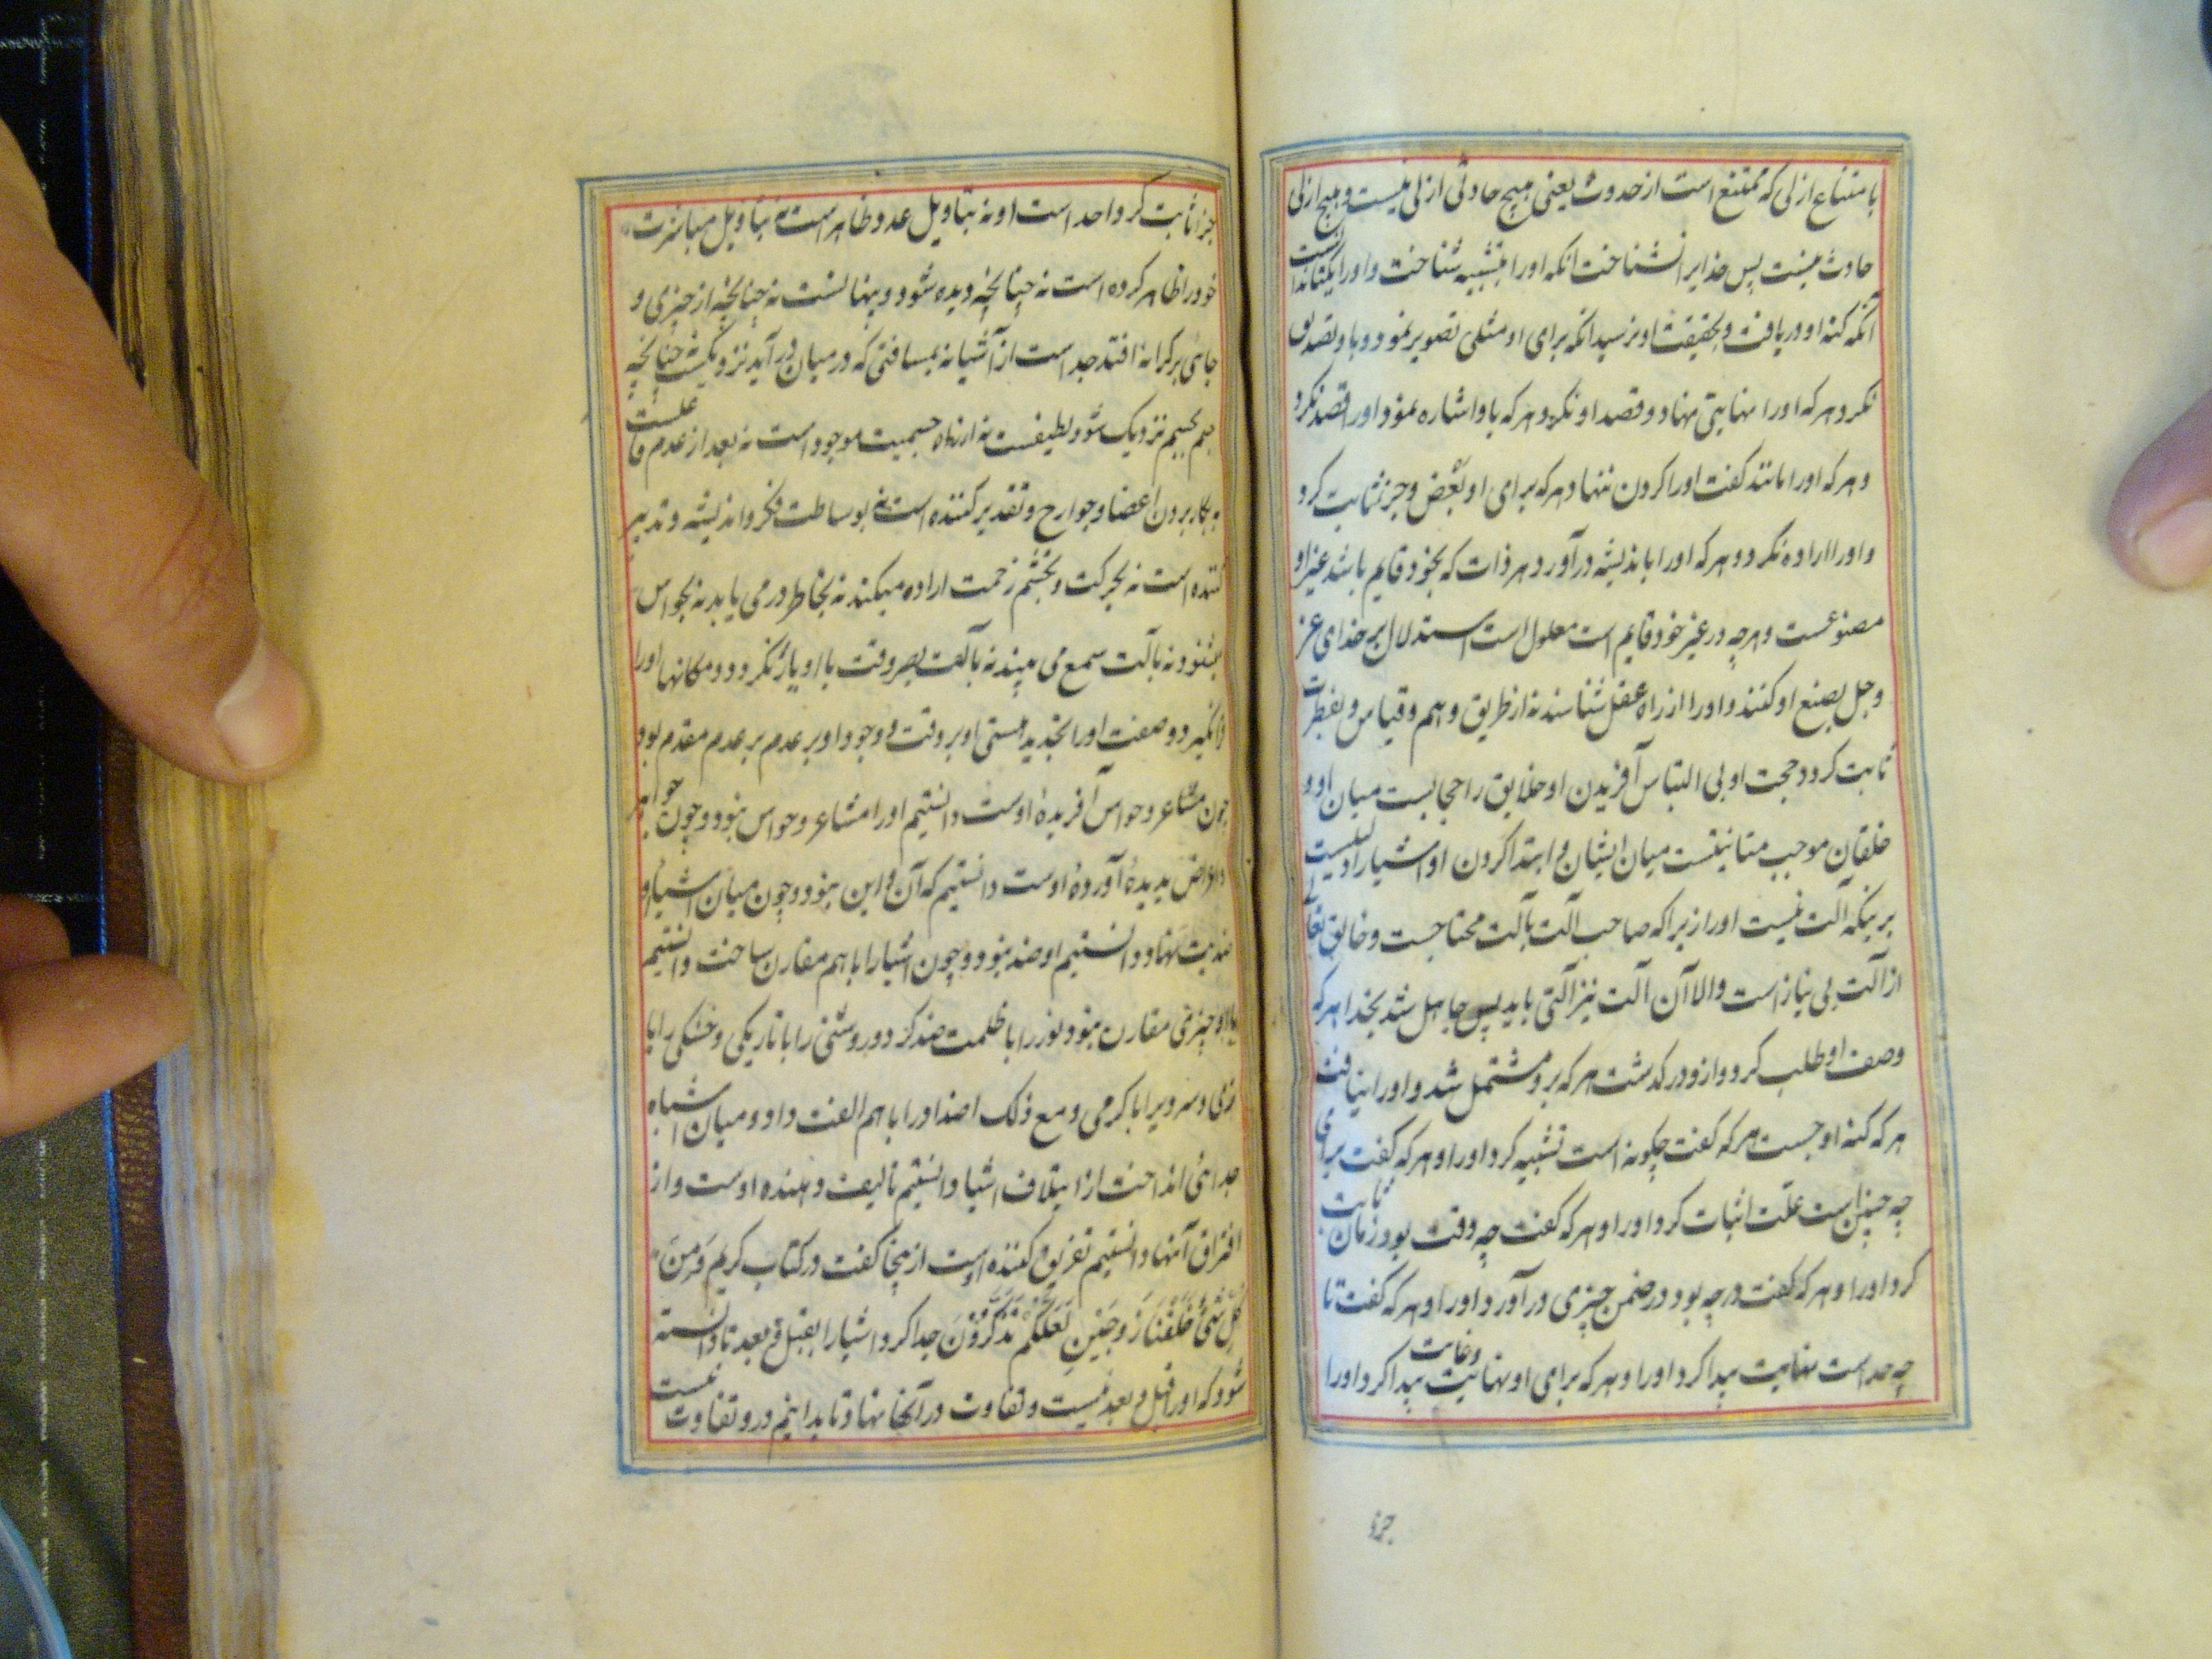 با متناع ازلی که ممتنع است از حدوث یعنی هیچ حادثی ازلی نیست و هیچ ازلی
حادث نیست پس خدایرا نشناخت آنکه اورا بتشبیه شناخت و اورا یکتا ندانست
آنکه کنه او دریافت و بحقیقت او نرسید آنکه برای او مثلی تصویر نمود و باو تصدیق
نکرد هر که اورا نهایتی نهاد و قصد او نکرد هر که باو اشاره نمود و اورا قصد نکرد
و هر که اورا مانند گفت اورا کردن ننهاد هر که برای او بعض و جز ثابت کرد
و اورا اراده نکرد و هر که اورا باندیشه درآورد هر ذات که بخود قایم باشد غیر او
مصنوعست و هرچه در غیر خود قایم است معلول است استدلال بر خدای عز
و جل بصنع او کنند و اورا از راه عقل شناسند نه از طریق وهم و قیاس و بفطرت
ثابت کرد حجت او بی التباس آفریدن او خلایق را حجابیست میان او و
خلقان موجب مباینتست میان ایشان و ابتدا کردن او اشیارا دلیلست
برینکه آلت نیست اورا زیرا که صاحب آلت بآلت محتاجست و خالق تعالی
از آلت بی نیاز است والا آن آلت نیز آلتی باید پس جاهل شد بخدا هر که
وصف او طلب کرد و ازو درگذشت هر که برو مشتمل شد و اورا نیافت
هر که کنه او جست هر که گفت چگونه است تشبیه کرد اورا و هر که گفت برای
چه چنین است علّت اثبات کرد اورا و هر که گفت چه وقت بود زمان ثابت
کرد اورا و هر که گفت در چه بود در ضمن چیزی درآورد اورا و هر که گفت تا
چه حد است نهایت پیدا کرد اورا و هر که برای او نهایت و غایت پیدا کرد اورا
جزو
جز ثابت کرد واحد است او نه بتاویل عدد ظاهر است نه بتاویل مباشرت
خودرا ظاهر کرده است نه چنانچه دیده شود و پنهانست نه چنانچه از چیزی و
جای بر کرانه افتد جداست از آشیا نه بمسافتی که در میان درآید نزدیکست نه چنانچه
جسم بجسم نزدیک شود لطیفست نه از راه جسمیت موجود است نه بعد از عدم فاعلست
نه بکار بردن اعضا و جوارح و تقدیر کننده است نه بوساطت فکر و اندیشه و تدبیر
کننده است نه بحرکت و بخشم زحمت اراده میکند نه بخاطر در می یابد نه بحواس
میشنود نه بآلت سمع می بیند نه بآلت بصر وقت با او یار نگردد و مکانها اورا
فرا نگیرد و صفت اورا تحدید هستی او بر وقت و وجود او بر عدم بر عدم مقدم بود
چون مشاعر و حواس آفریدهٔ اوست دانستیم اورا مشاعر و حواس نبود و چون جواهر
و اعراض پدیده آوردهٔ اوست دانستیم که آن و این نبود و چون میان اشیا و
ضدیت نهاد دانستیم او ضد نبود و چون اشیارا با هم مقارن ساخت دانستیم
با او چیزی مقارن نبود نوررا با ظلمت ضد کرد و روشنی را با تاریکی و خشکی را با
نری و سردیرا با گرمی و مع ذلک اضدادرا با هم الفت داد و میان اشباه
جدائی انداخت از ایتلاف اشیا دانستیم تالیف دهنده اوست و از
افتراق آنها دانستیم تفریق کننده اوست از ینجا گفت در کتاب کریم وَ مِن
كُلِّ شَيْءٍ خَلَقْنَا زَوْجَيْنِ لَعَلَّكُمْ تَذَكَّرُونَ جدا کرد اشیارا بقبل و بعد تا دانسته
شود که اورا قبل و بعد نیست و تفاوت در آنها نهاد تا بدانیم درو تفاوت نیست